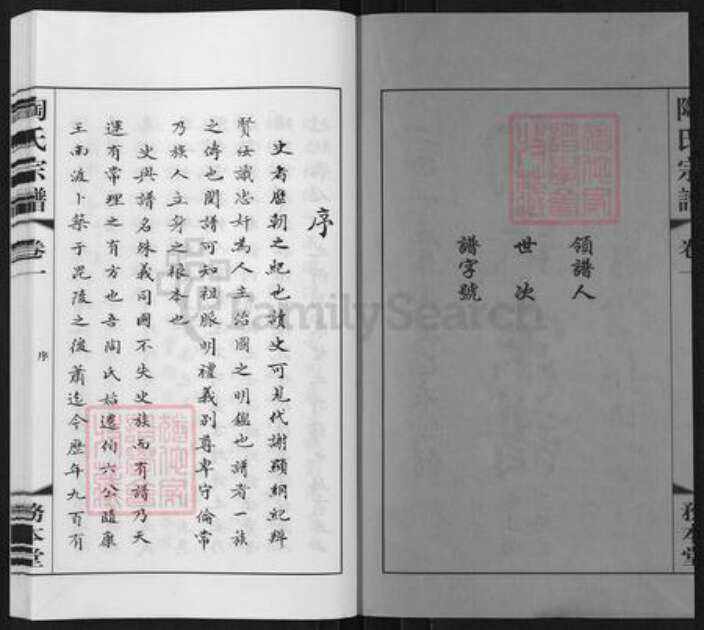 領譜人
世次
譜字號
序
史者歷朝之紀也讀史可見代謝顯綱紀辨
賢佞識忠奸為人主治國之明鑑也譜者一族
之傳也閱譜可知祖脈明禮義別尊卑守倫常
乃族人立身之根本也
史與譜名殊義同國不失史族而有譜乃天
運有常理之有方也吾陶氏始遷伯六公隨康
王南渡卜築于毘陵之後蕭迄今歷年九百有
陶氏宗譜 卷一 序 務本堂
陶氏宗譜 卷一 務本堂
FamilySearch